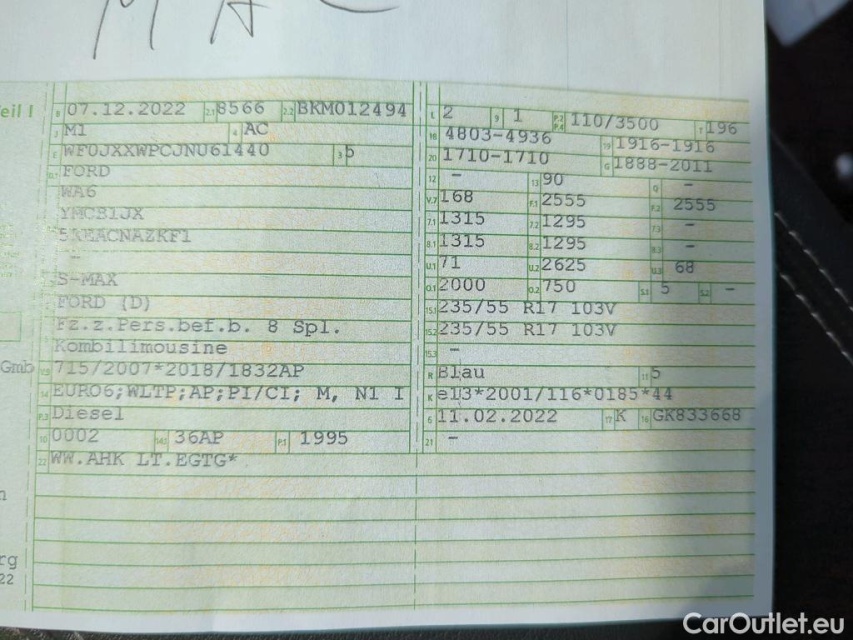 MAC
eil I
B 07.12.2022 2.1 8566 2.2 BKM012494
J M1 4 AC
E WF0JXXWPCJNU61440 3 5
D.1 FORD
WA6
YMCB1JX
5XEACNAZKF1
-
S-MAX
FORD (D)
Fz.z.Pers.bef.b. 8 Spl.
Kombilimousine
Gmb V.9 715/2007*2018/1832AP
14 EURO6;WLTP;AP;PI/CI; M, N1 I
P.3 Diesel
10 0002 14.1 36AP P.1 1995
22 WW.AHK LT.EGTG*
L 2 9 1 P.2 P.4 110/3500 T 196
18 4803-4936 19 1916-1916
20 1710-1710 G 1888-2011
12 - 13 90 Q -
V.7 168 F.1 2555 F.2 2555
7.1 1315 7.2 1295 7.3 -
8.1 1315 8.2 1295 8.3 -
U.1 71 U.2 2625 U.3 68
O.1 2000 O.2 750 S.1 5 S.2 -
15.1 235/55 R17 103V
15.2 235/55 R17 103V
15.3 -
R Blau 11 5
K e13*2001/116*0185*44
6 11.02.2022 17 K 16 GK833668
21 -
n
rg
22
CarOutlet.eu